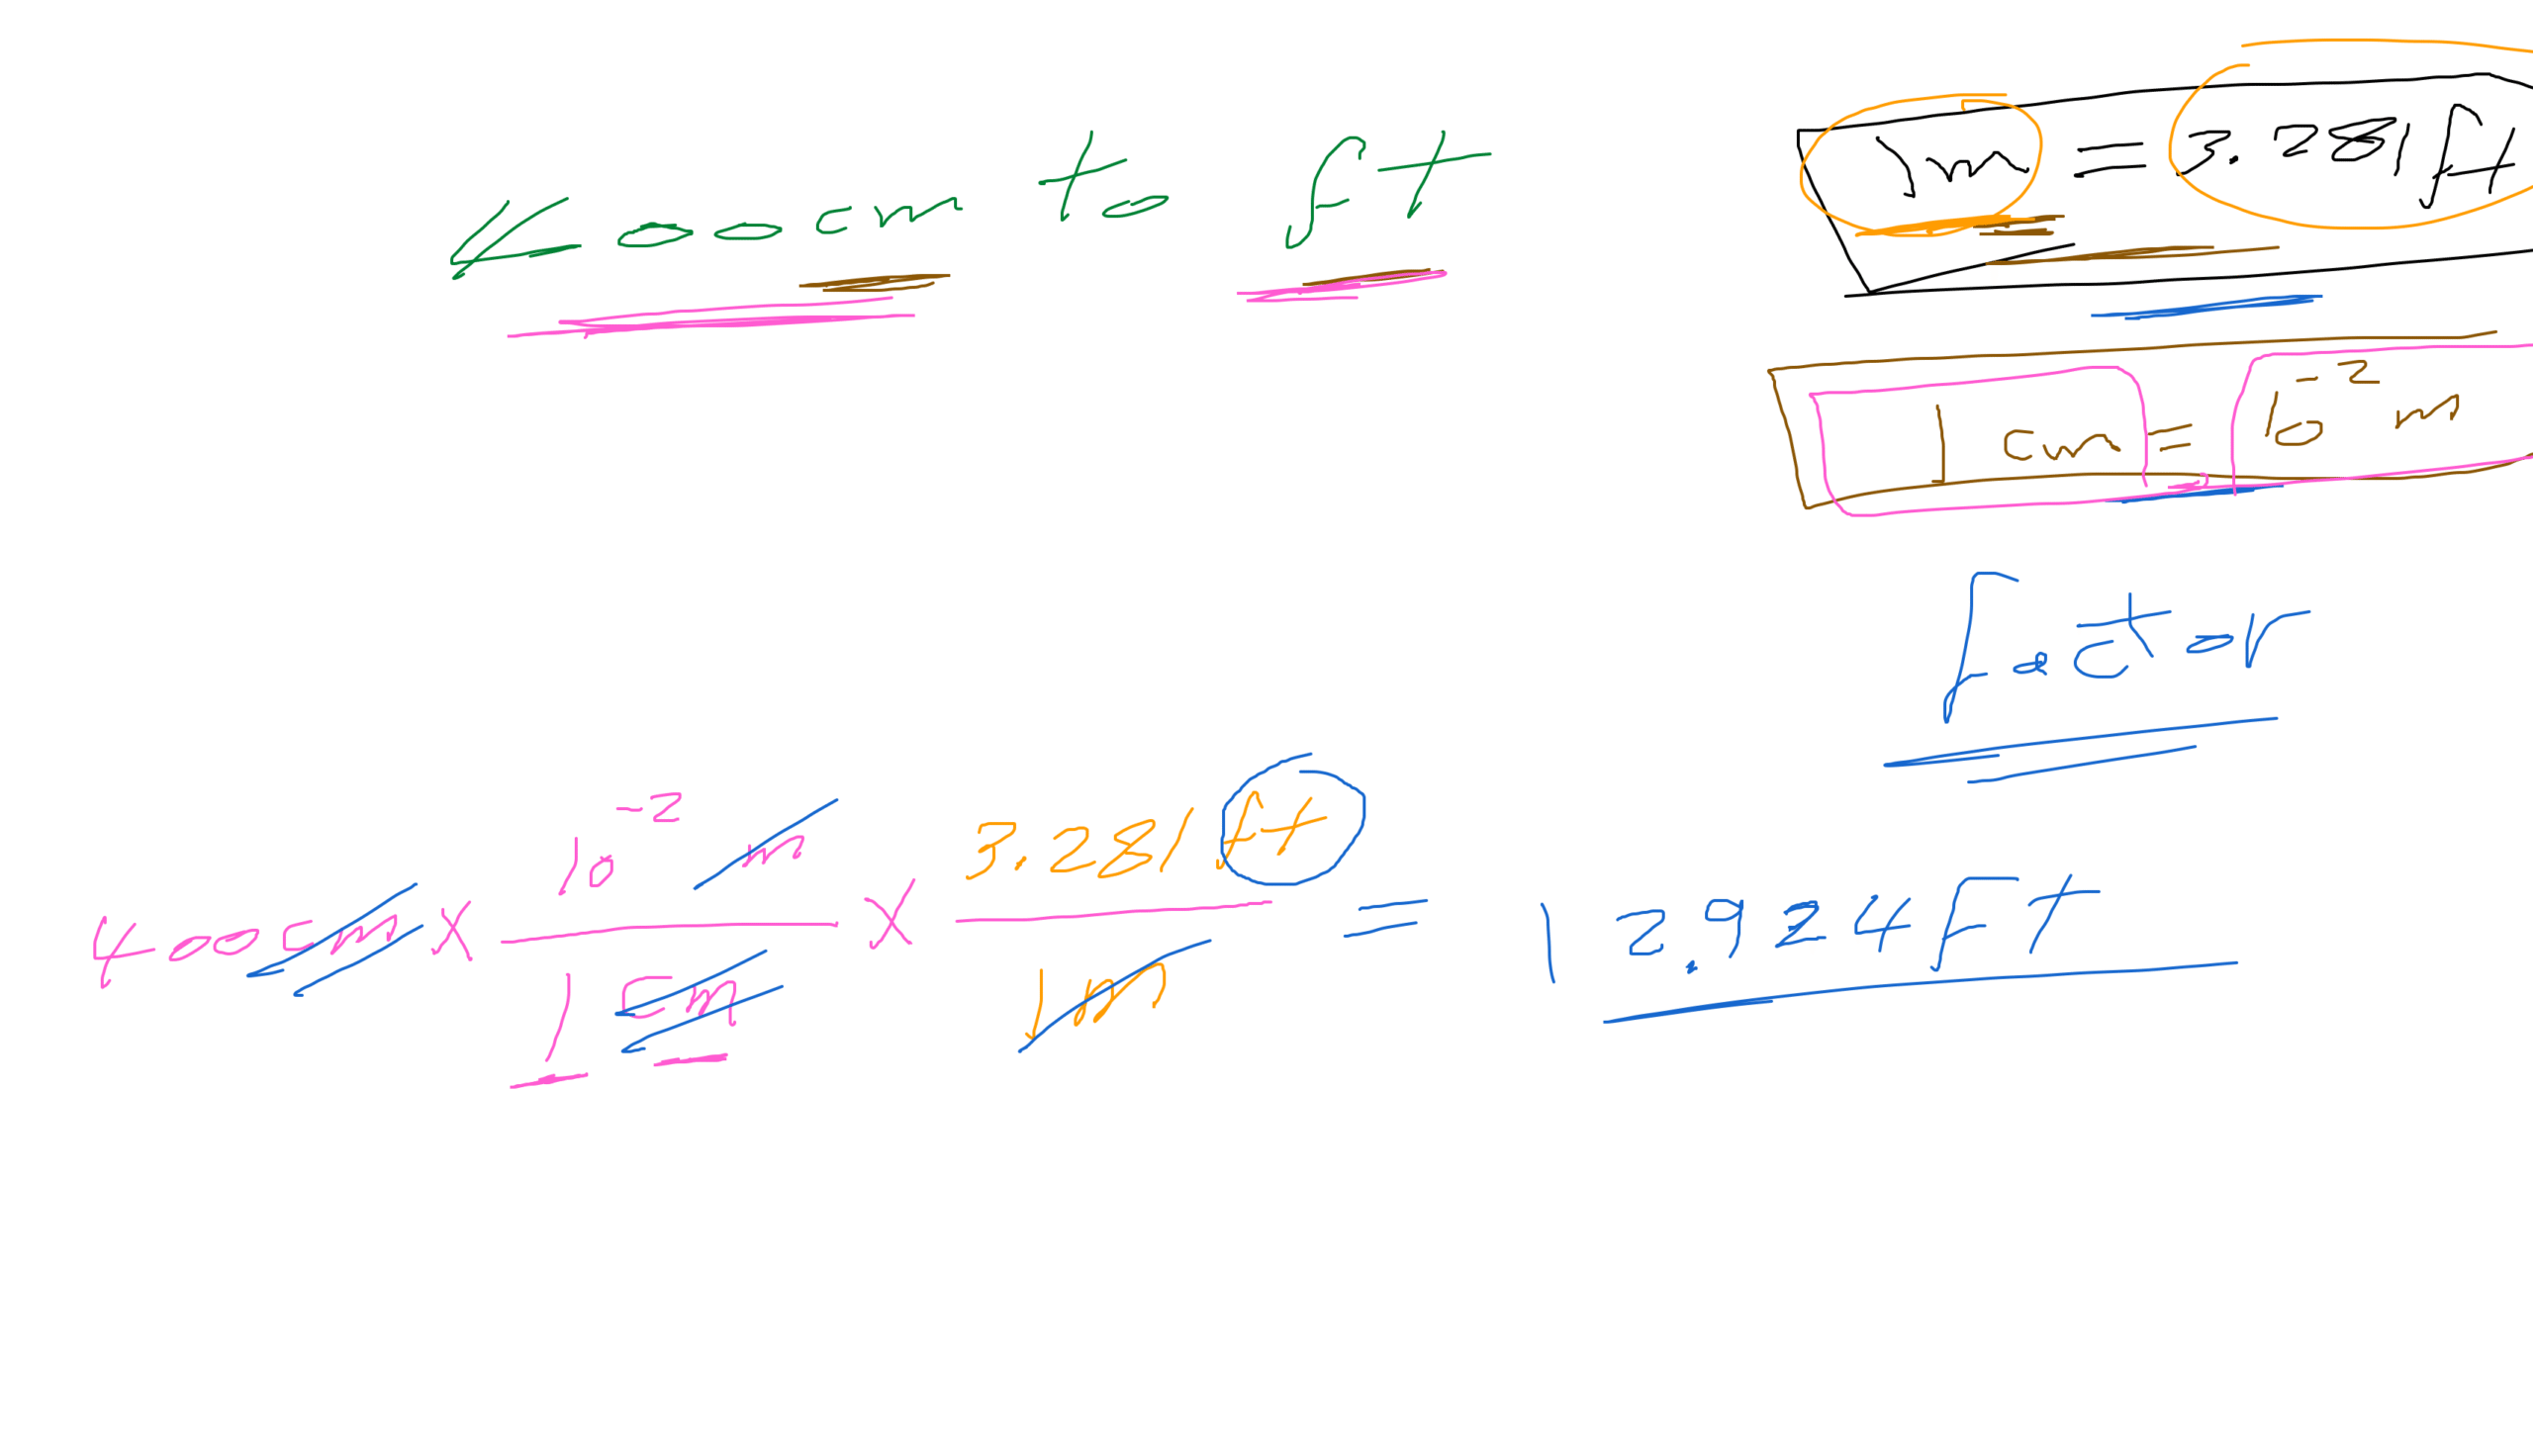 400cm to ft
1m = 3.281ft
1 cm = 10⁻² m
factor
400cm × 10⁻² m / 1 cm × 3.281 ft / 1m = 12.924 Ft